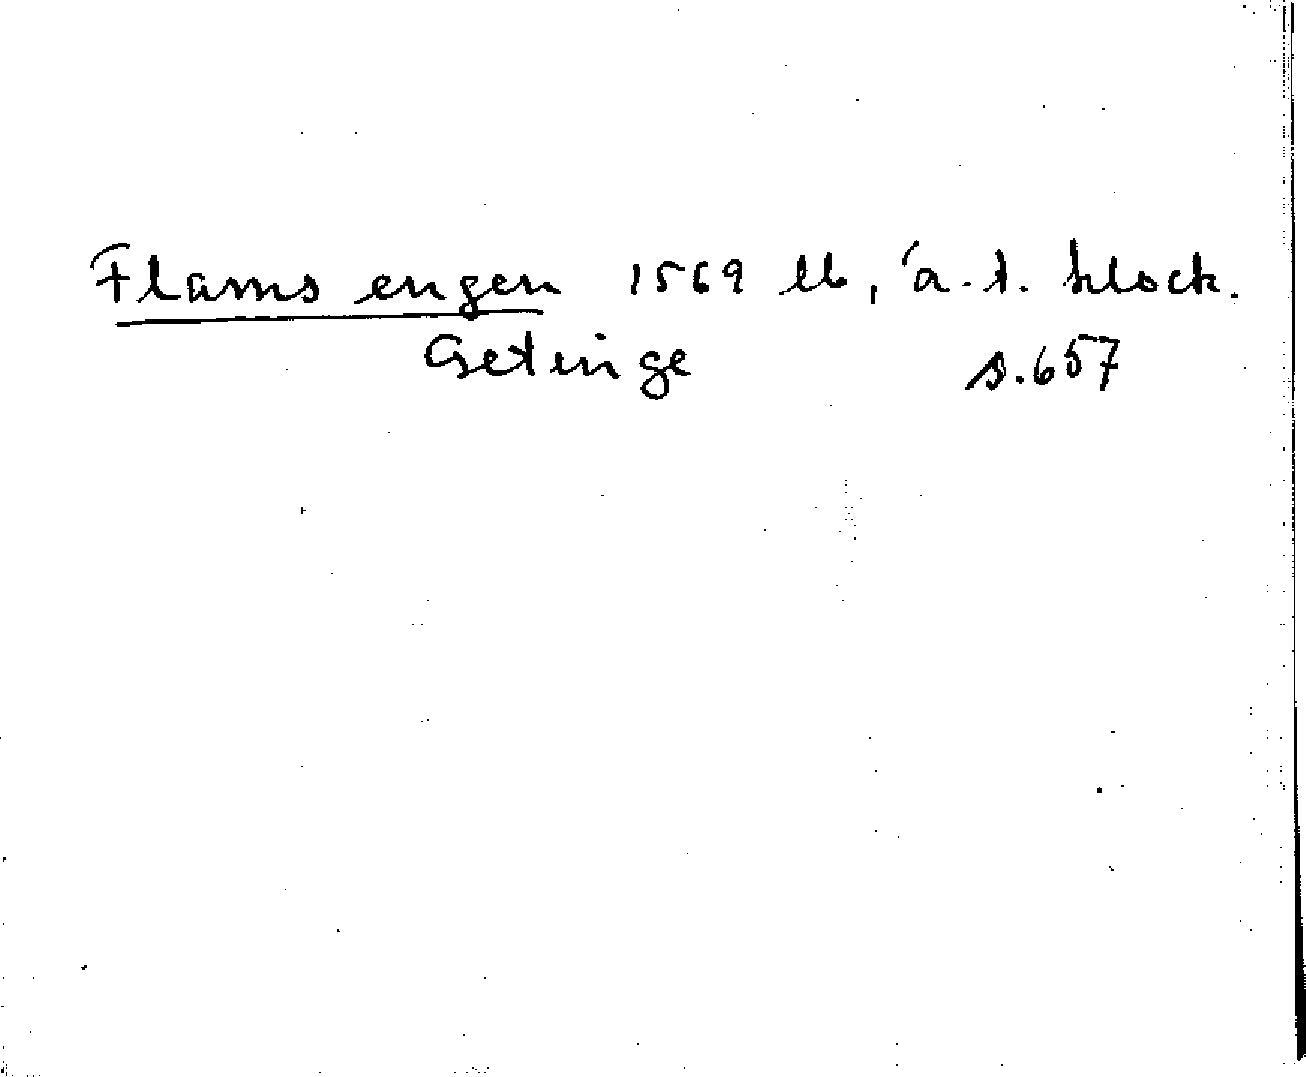 Flams engen 1569 lb, ä.t. klock.
Getinge s.657